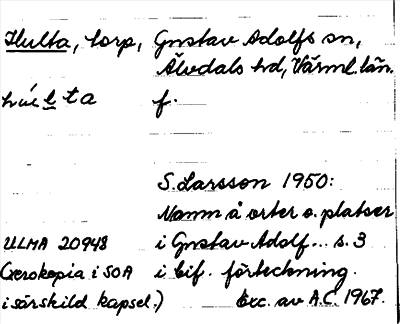 Hulta, torp, Gustav Adolfs sn,
Älvdals hd, Värml. län.
f.
S. Larsson 1950:
Namn å orter o. platser
ULMA 20948 i Gustav Adolf... s. 3
(Xerokopia i SOA i bif. förteckning.
i särskild kapsel.) Exc. av A.C. 1967.